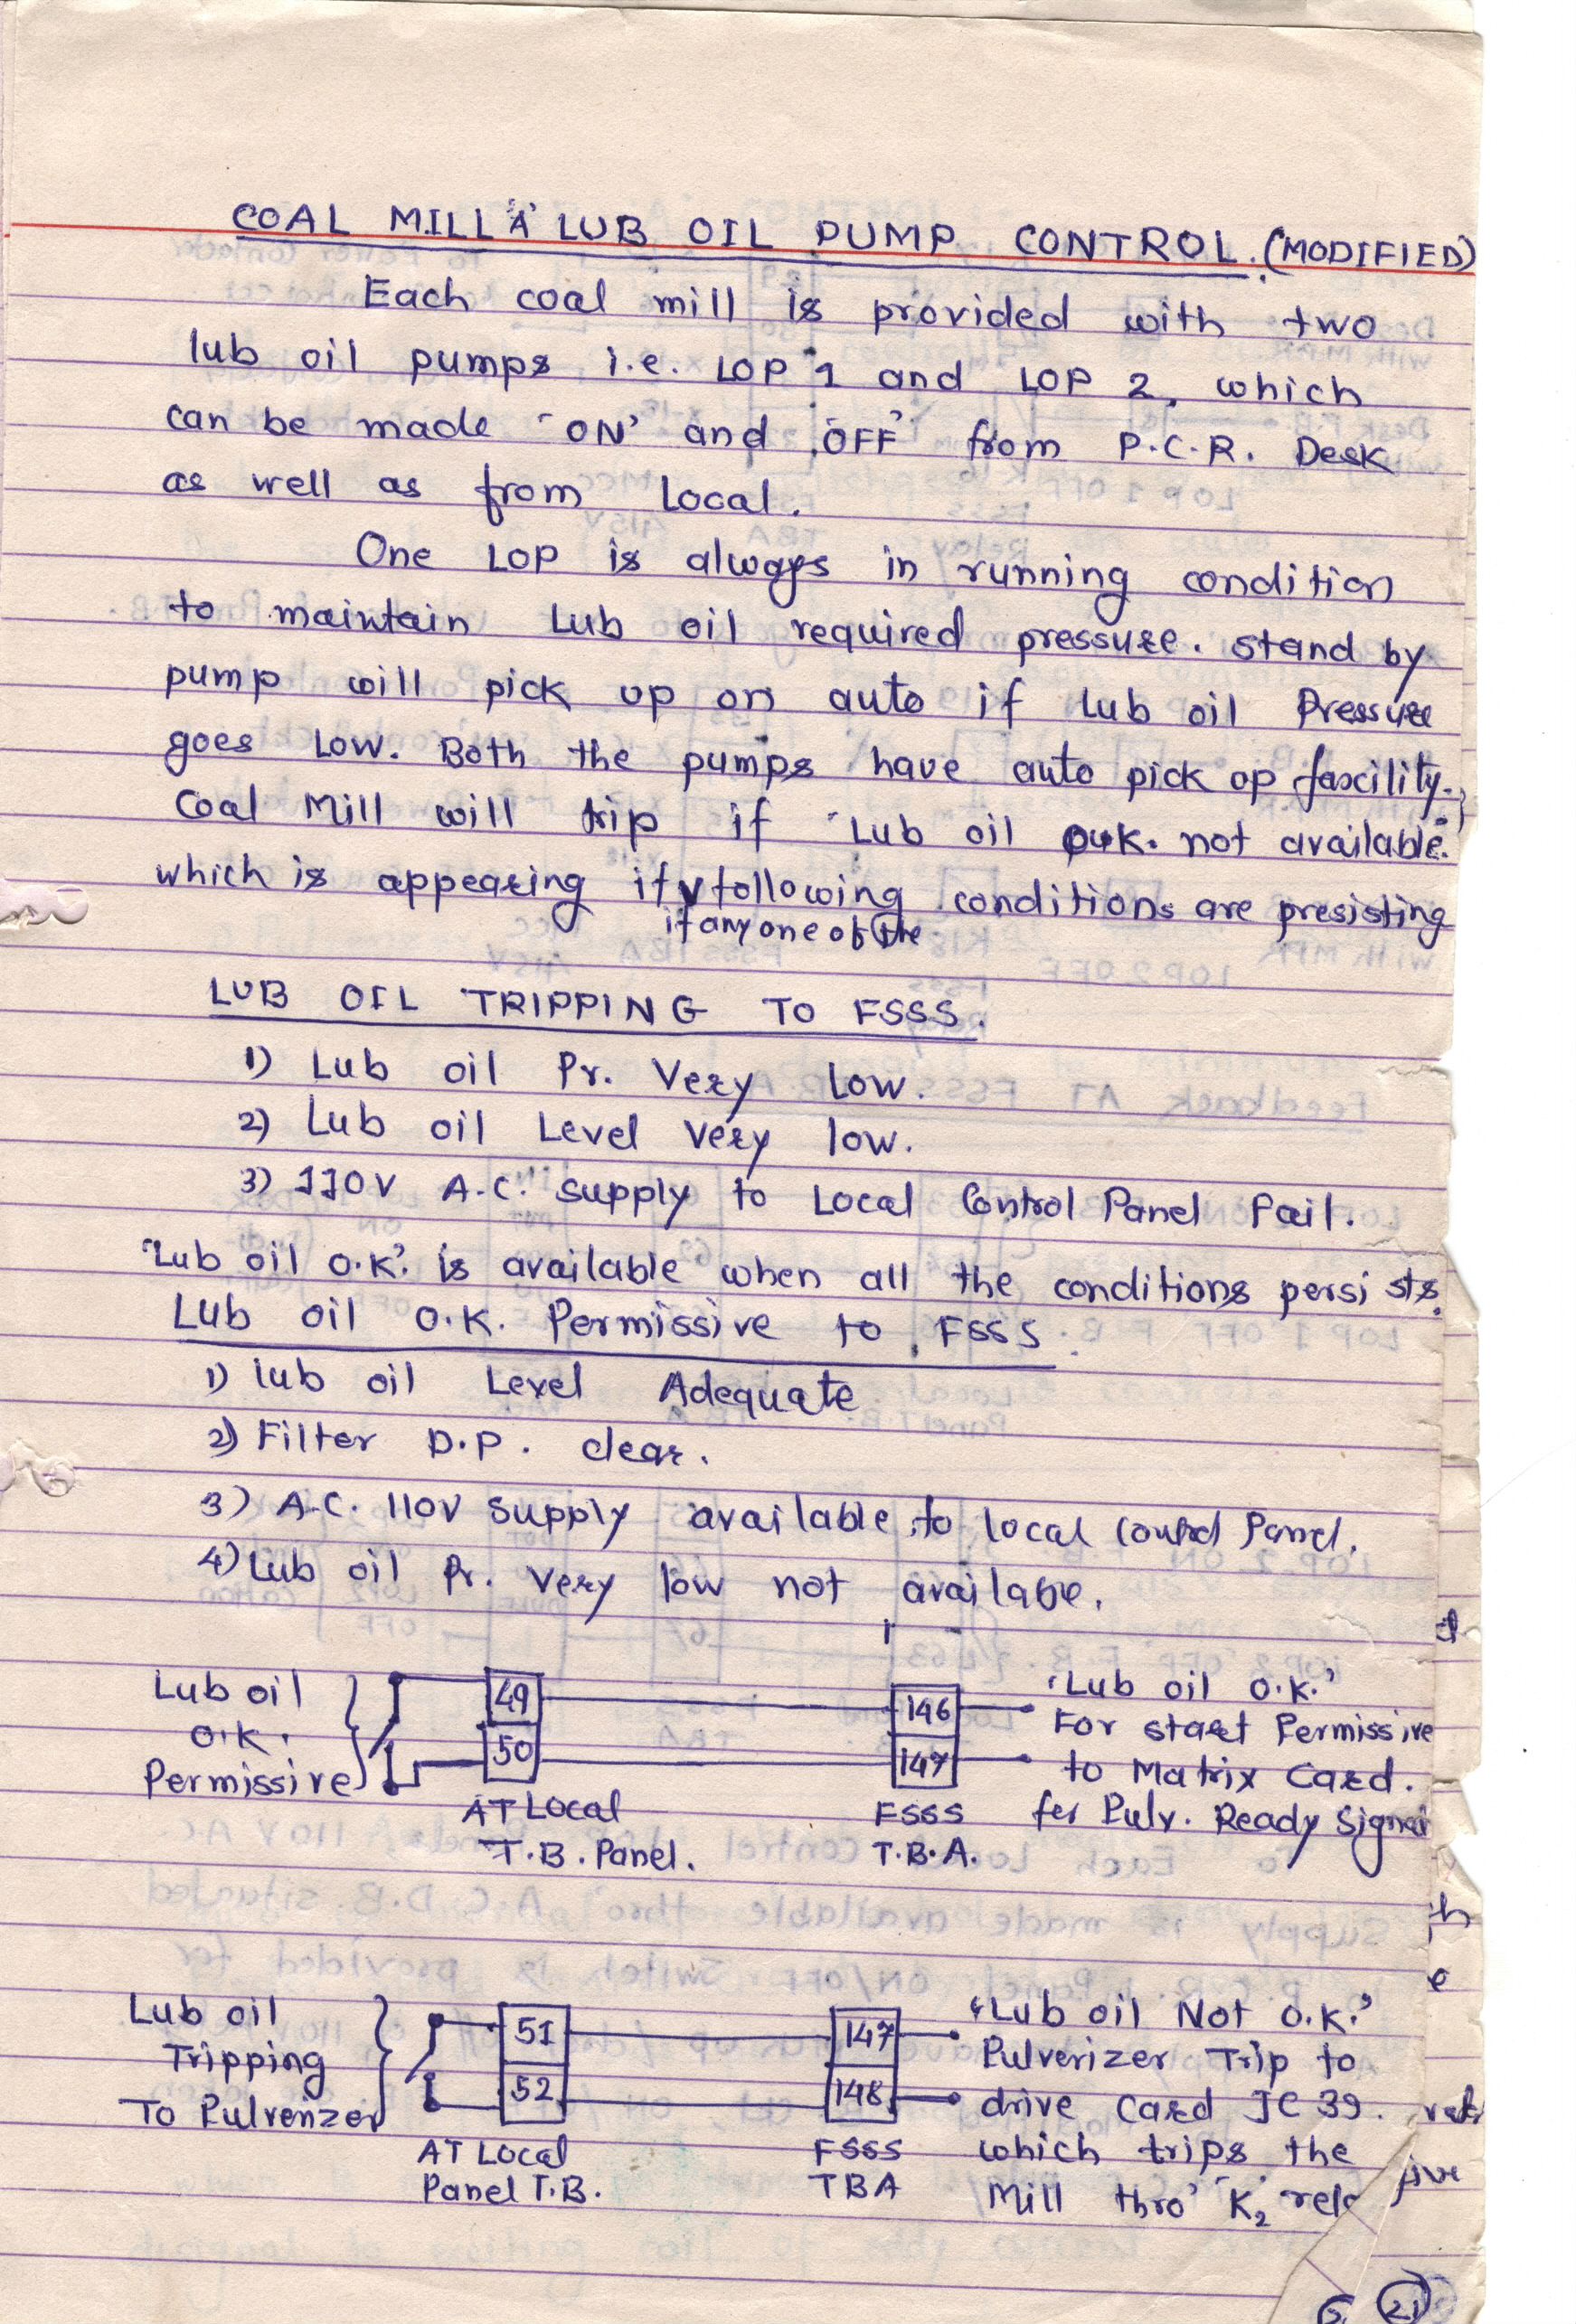 COAL MILL 'A' LUB OIL PUMP CONTROL. (MODIFIED)
Each coal mill is provided with two
lub oil pumps i.e. LOP 1 and LOP 2, which
can be made 'ON' and 'OFF' from P.C.R. Desk
as well as from Local.
One LOP is always in running condition
to maintain Lub oil required pressure. stand by
pump will pick up on auto if Lub oil Pressure
goes Low. Both the pumps have auto pick op fascility.
Coal Mill will trip if 'Lub oil O.K. not available.
which is appearing if following conditions are presisting
if any one of the
LUB OIL TRIPPING TO FSSS.
1) Lub oil Pr. Very Low.
2) Lub oil Level very low.
3) 110V A.C. supply to Local Control Panel Fail.
'Lub oil O.K.' is available when all the conditions persists.
Lub oil O.K. Permissive to FSSS
1) lub oil Level Adequate
2) Filter D.P. clear.
3) A.C. 110V supply available to local control Panel.
4) Lub oil Pr. very low not availabe.
Lub oil
O.K.
Permissive
49
50
AT Local
T.B. Panel.
146
147
FSSS
T.B.A.
'Lub oil O.K.'
For start Permissive
to Matrix Card.
for Pulv. Ready Signal
Lub oil
Tripping
To Pulverizer
51
52
AT Local
Panel T.B.
147
148
FSSS
TBA
'Lub oil Not O.K.'
Pulverizer Trip to
drive Card JC 39.
which trips the
Mill thro' 'K2'
21